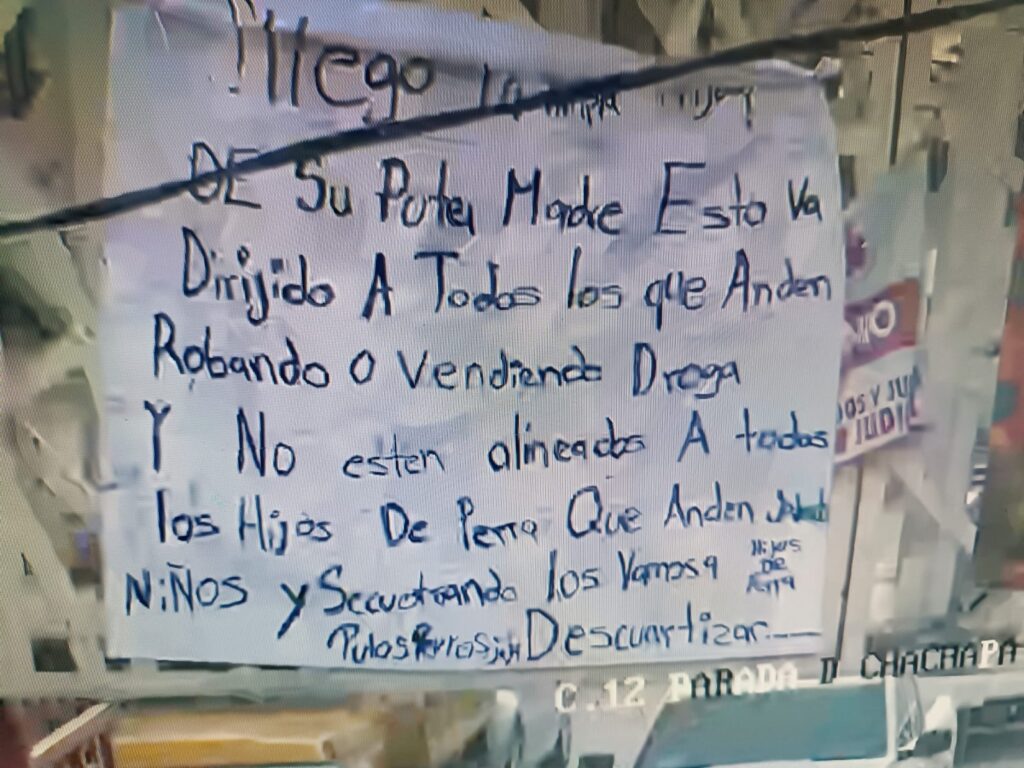 !llego la limpia Hijos
DE Su Puta Madre Esto Va
Dirijido A Todos los que Anden
Robando O Vendiendo Droga
Y No esten alineados A todos
los Hijos De Perra Que Anden
NiÑOS y Secuetrando los Vamos a
Hijos
De
Perra
Putos Perros Descuartizar
NO
OS Y JU
JUDI
C.12 PARADA D CHACHAPA